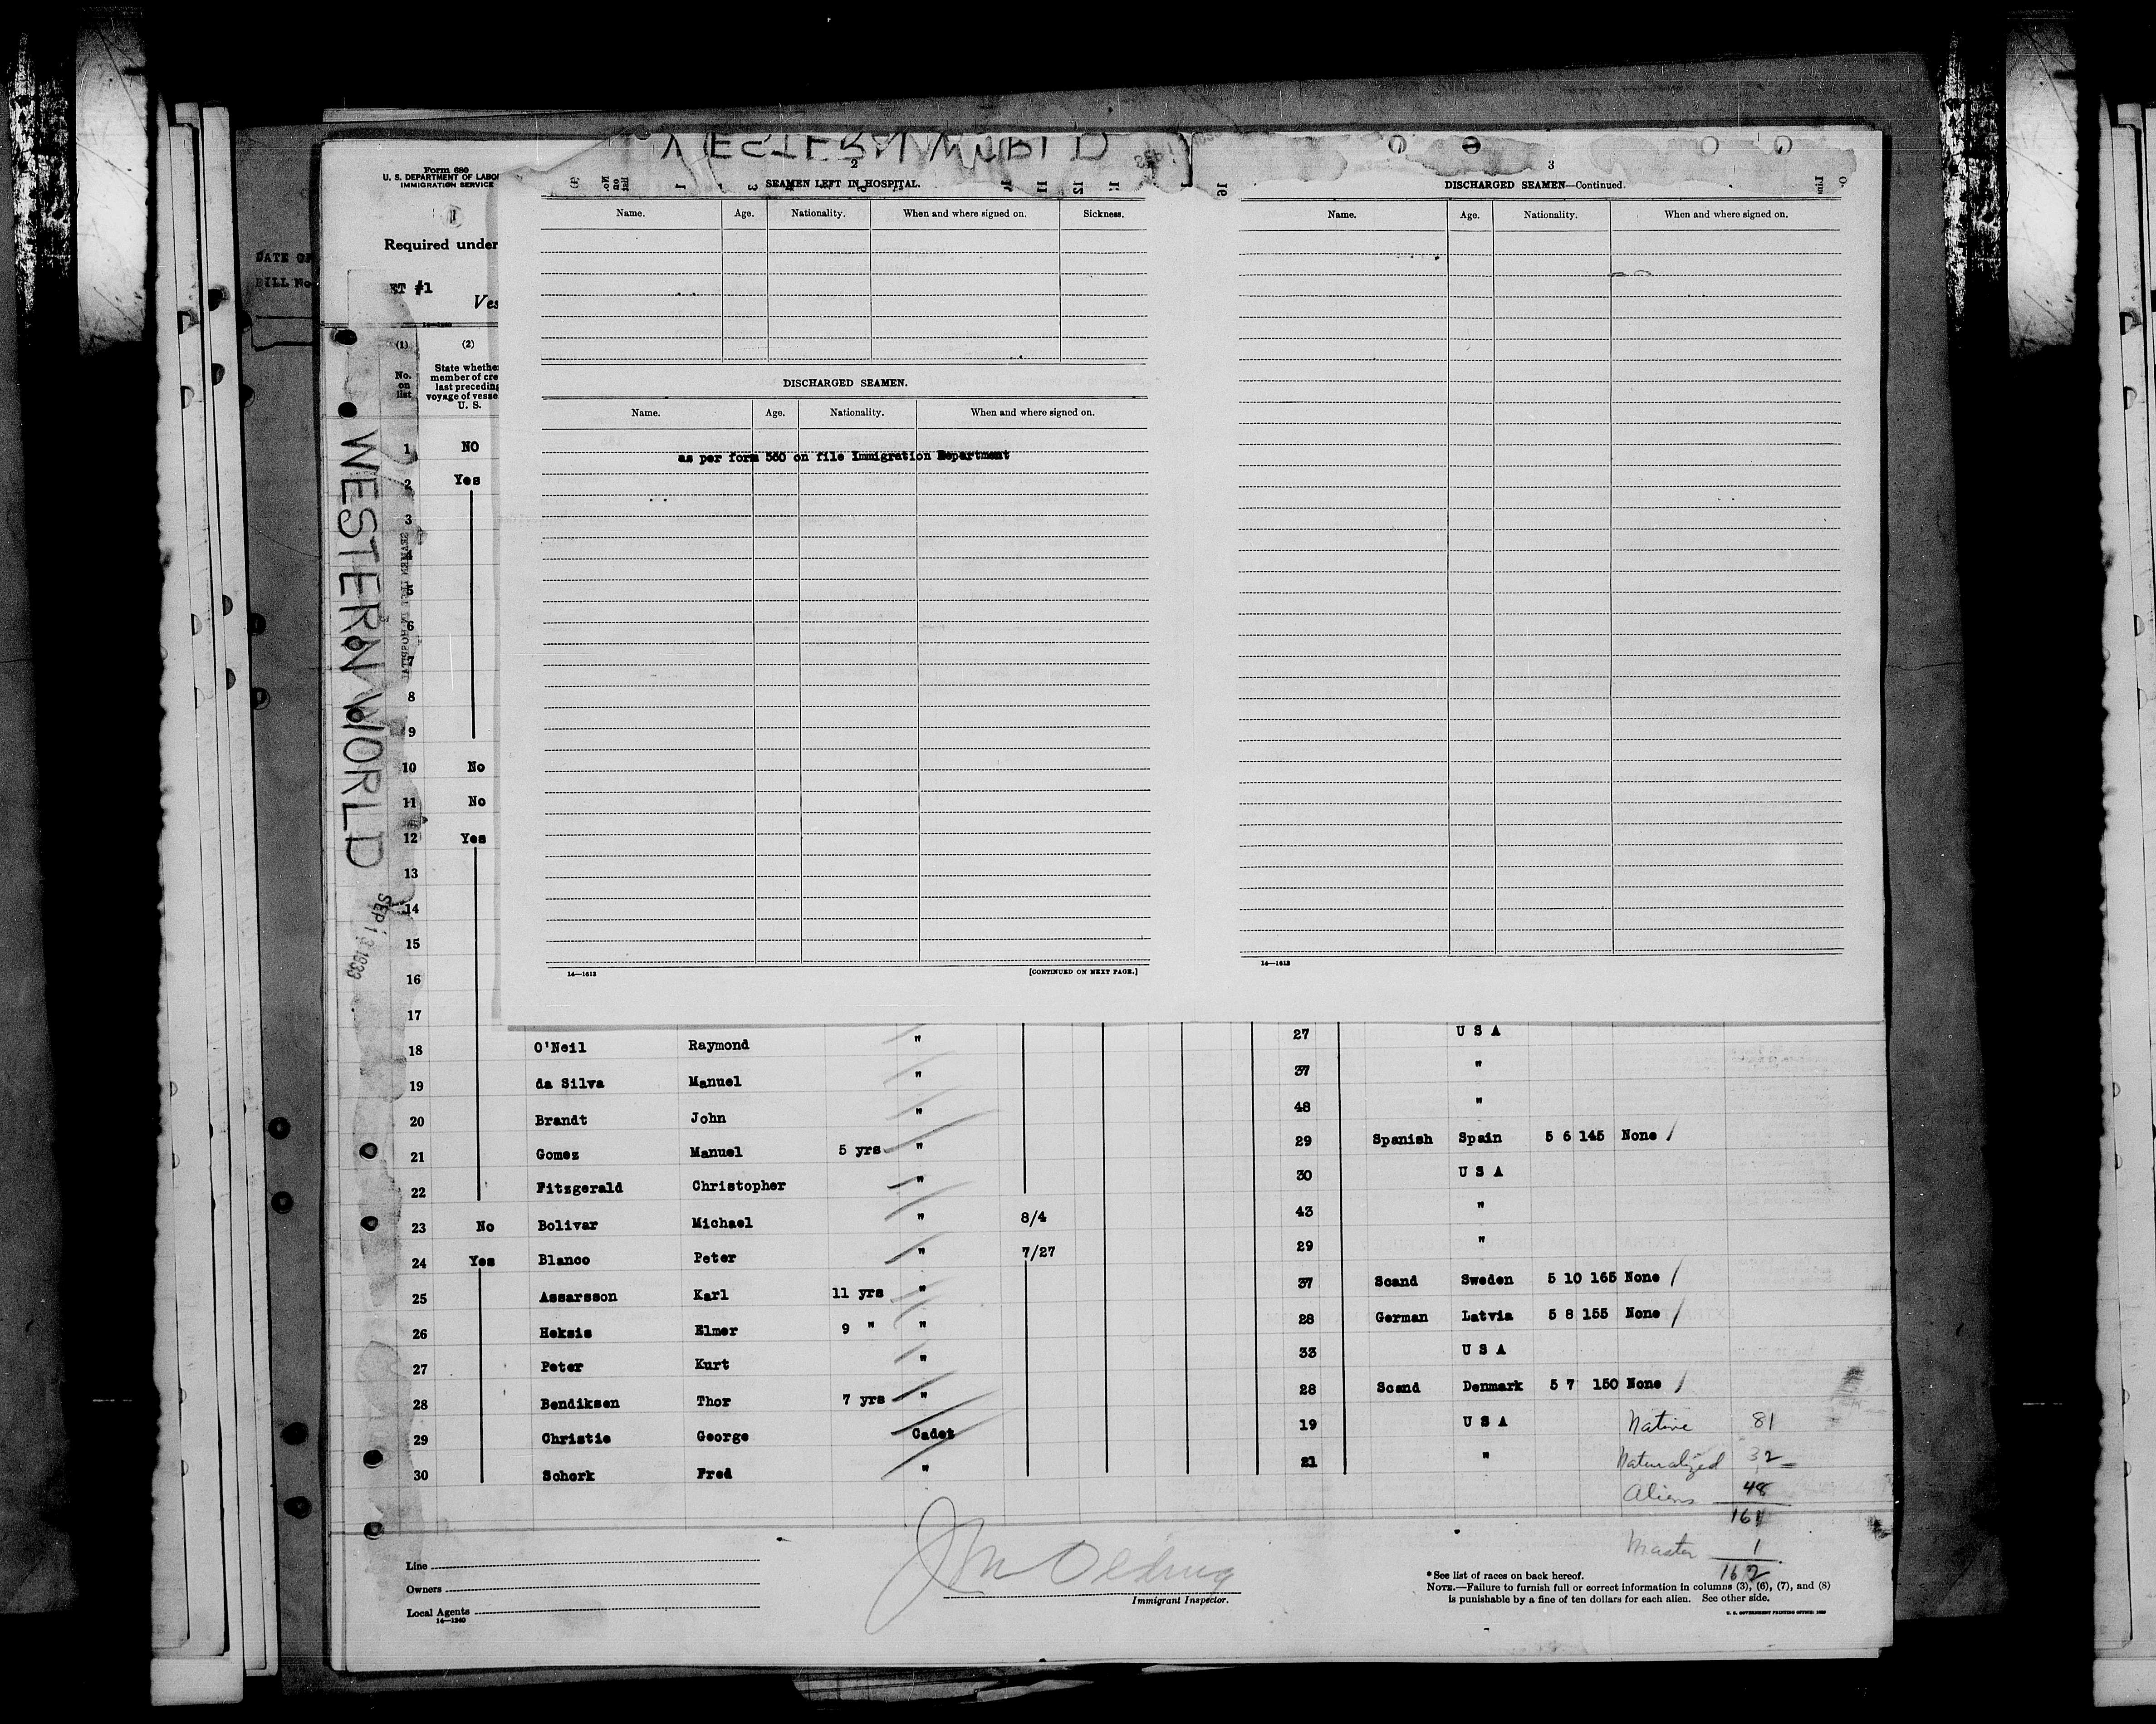 Form 680
U. S. DEPARTMENT OF LABO
IMMIGRATION SERVICE
Required under
DATE OF
BILL No
ET #1
Ves
(1) (2)
No. on list
State whether
member of cre
last preceding
voyage of vesse
U. S.
WESTERN WORLD
SEP 1 2 1933
2
SEAMEN LEFT IN HOSPITAL.
Name. Age. Nationality. When and where signed on. Sickness.
DISCHARGED SEAMEN.
Name. Age. Nationality. When and where signed on.
as per form 560 on file Immigration Department
14—1613 [CONTINUED ON NEXT PAGE.]
3
DISCHARGED SEAMEN—Continued.
Name. Age. Nationality. When and where signed on.
14—1613
1 NO
2 Yes
3
4
5
6
7
8
9
10 No
11 No
12 Yes
13
14
15
16
17
18 O'Neil Raymond " 27 U S A
19 da Silva Manuel " 37 "
20 Brandt John " 48 "
21 Gomez Manuel 5 yrs " 29 Spanish Spain 5 6 145 None /
22 Fitzgerald Christopher " 30 U S A
23 No Bolivar Michael " 8/4 43 "
24 Yes Blanco Peter " 7/27 29 "
25 Assarsson Karl 11 yrs " 37 Scand Sweden 5 10 165 None /
26 Heksis Elmer 9 " " 28 German Latvia 5 8 155 None /
27 Peter Kurt " 33 U S A
28 Bendiksen Thor 7 yrs " 28 Scand Denmark 5 7 150 None /
29 Christie George Cadet 19 U S A
30 Scherk Fred " 21 "
Native 81
Naturalized 32
Aliens 48
161
Master 1
162
Line
Owners
Local Agents
14—1240
Immigrant Inspector.
*See list of races on back hereof.
NOTE.—Failure to furnish full or correct information in columns (3), (6), (7), and (8)
is punishable by a fine of ten dollars for each alien. See other side.
U. S. GOVERNMENT PRINTING OFFICE: